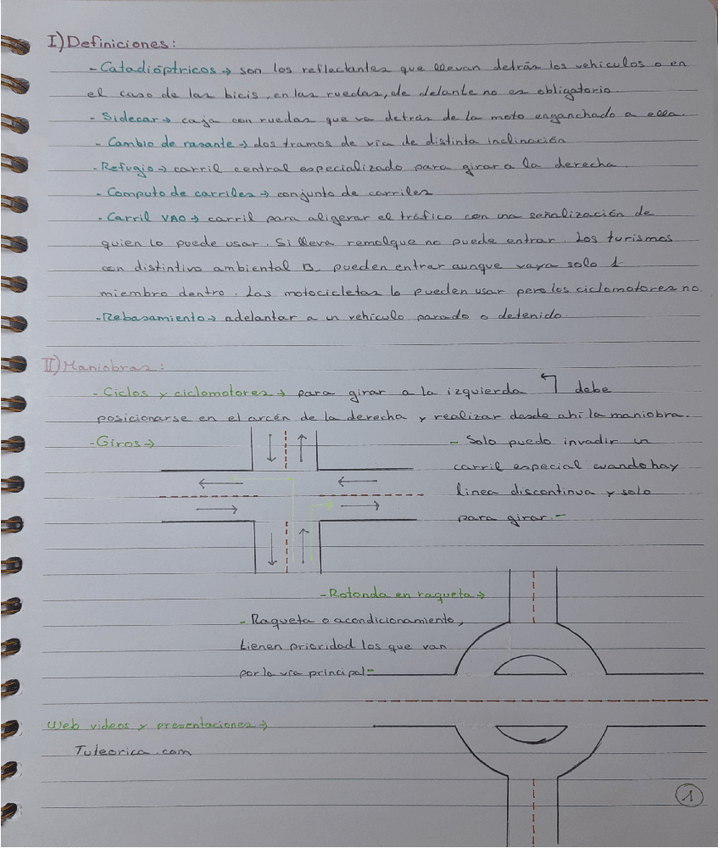 I) Definiciones:
- Catadióptricos → son los reflectantes que llevan detrás los vehículos o en
el caso de las bicis, en las ruedas, de delante no es obligatorio.
- Sidecar → caja con ruedas que va detrás de la moto enganchado a ella.
- Cambio de rasante → dos tramos de vía de distinta inclinación
- Refugio → carril central especializado para girar a la derecha.
- Computo de carriles → conjunto de carriles
- Carril VAO → carril para aligerar el tráfico con una señalización de
quien lo puede usar. Si lleva remolque no puede entrar. Los turismos
con distintivo ambiental B. pueden entrar aunque vaya solo 1
miembro dentro. Las motocicletas lo pueden usar pero los ciclomotores no.
- Rebasamiento → adelantar a un vehículo parado o detenido.
II) Maniobras:
- Ciclos y ciclomotores → para girar a la izquierda ↰ debe
posicionarse en el arcén de la derecha y realizar desde ahí la maniobra.
- Giros →
- Solo puedo invadir un
carril especial cuando hay
línea discontinua y solo
para girar. -
- Rotonda en raqueta →
- Raqueta o acondicionamiento,
tienen prioridad los que van
por la vía principal -
Web videos y presentaciones →
Tuteorica.com
1